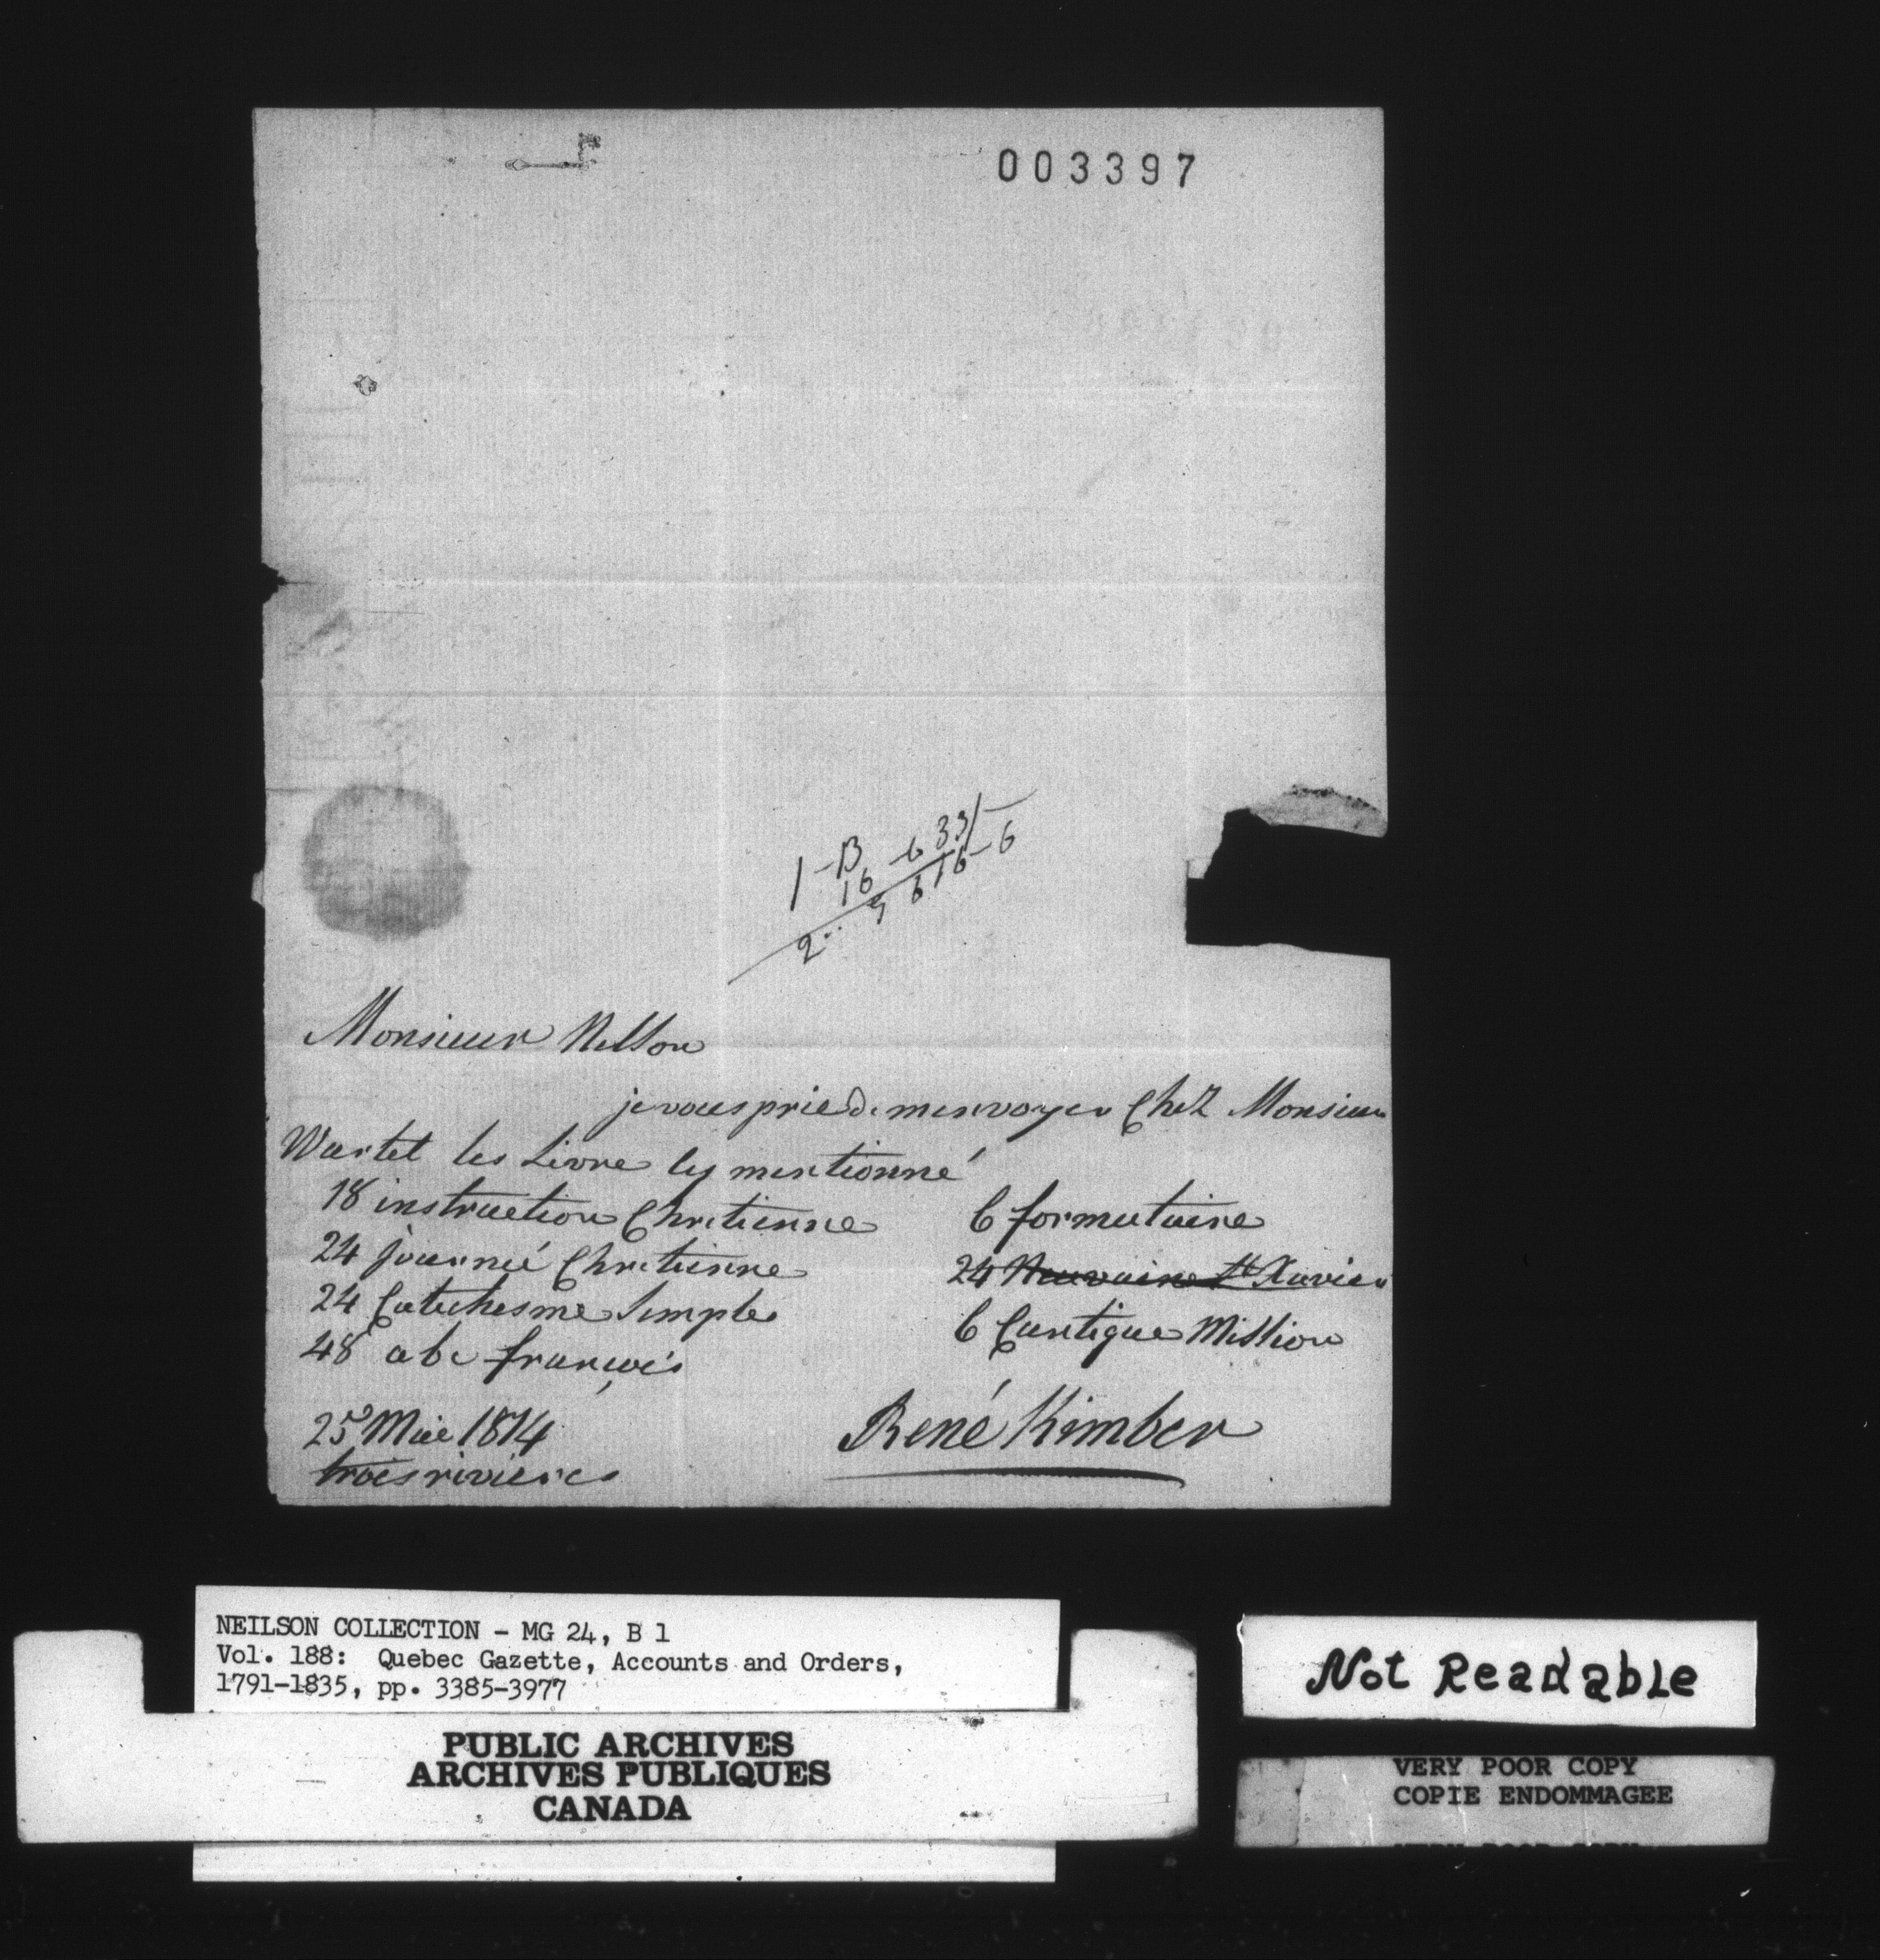 003397
1 - 13 - 6 33/-
16 16 - 6
2 .. 9 6
Monsieur Nelson
je vous prie de menvoyer Chez Monsieur
Wartel les Livre cy mentionné
18 instruction Chretienne 6 formulaire
24 journeé Chretienne 24 Neuvaine St Xavier
24 Catechesme Simple 6 Cantique Mission
48 abc françois
25 Mai 1814 René Kimber
troisrivieres
NEILSON COLLECTION - MG 24, B 1
Vol. 188: Quebec Gazette, Accounts and Orders,
1791-1835, pp. 3385-3977
PUBLIC ARCHIVES
ARCHIVES PUBLIQUES
CANADA
Not Readable
VERY POOR COPY
COPIE ENDOMMAGEE